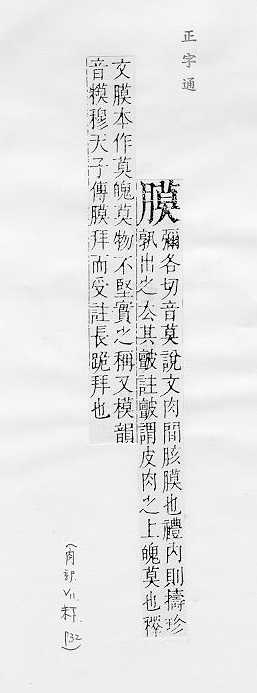 正字通
膜
彌各切音莫說文肉間胲膜也禮內則擣珍
孰出之厺其皽註皽謂皮肉之上魄莫也釋
文膜本作莫魄莫物不堅實之稱又模韻
音模穆天子傳膜拜而受註長跪拜也
(肉部. V11. 未. P32)